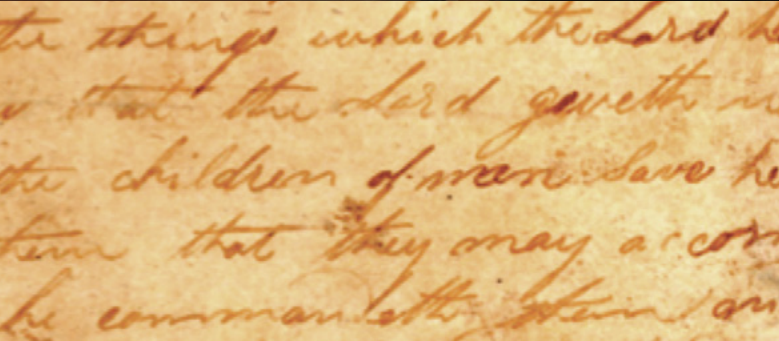 the things which the Lord h
that the Lord geveth n
the children of men save he
them that they may accom
he commandeth them an